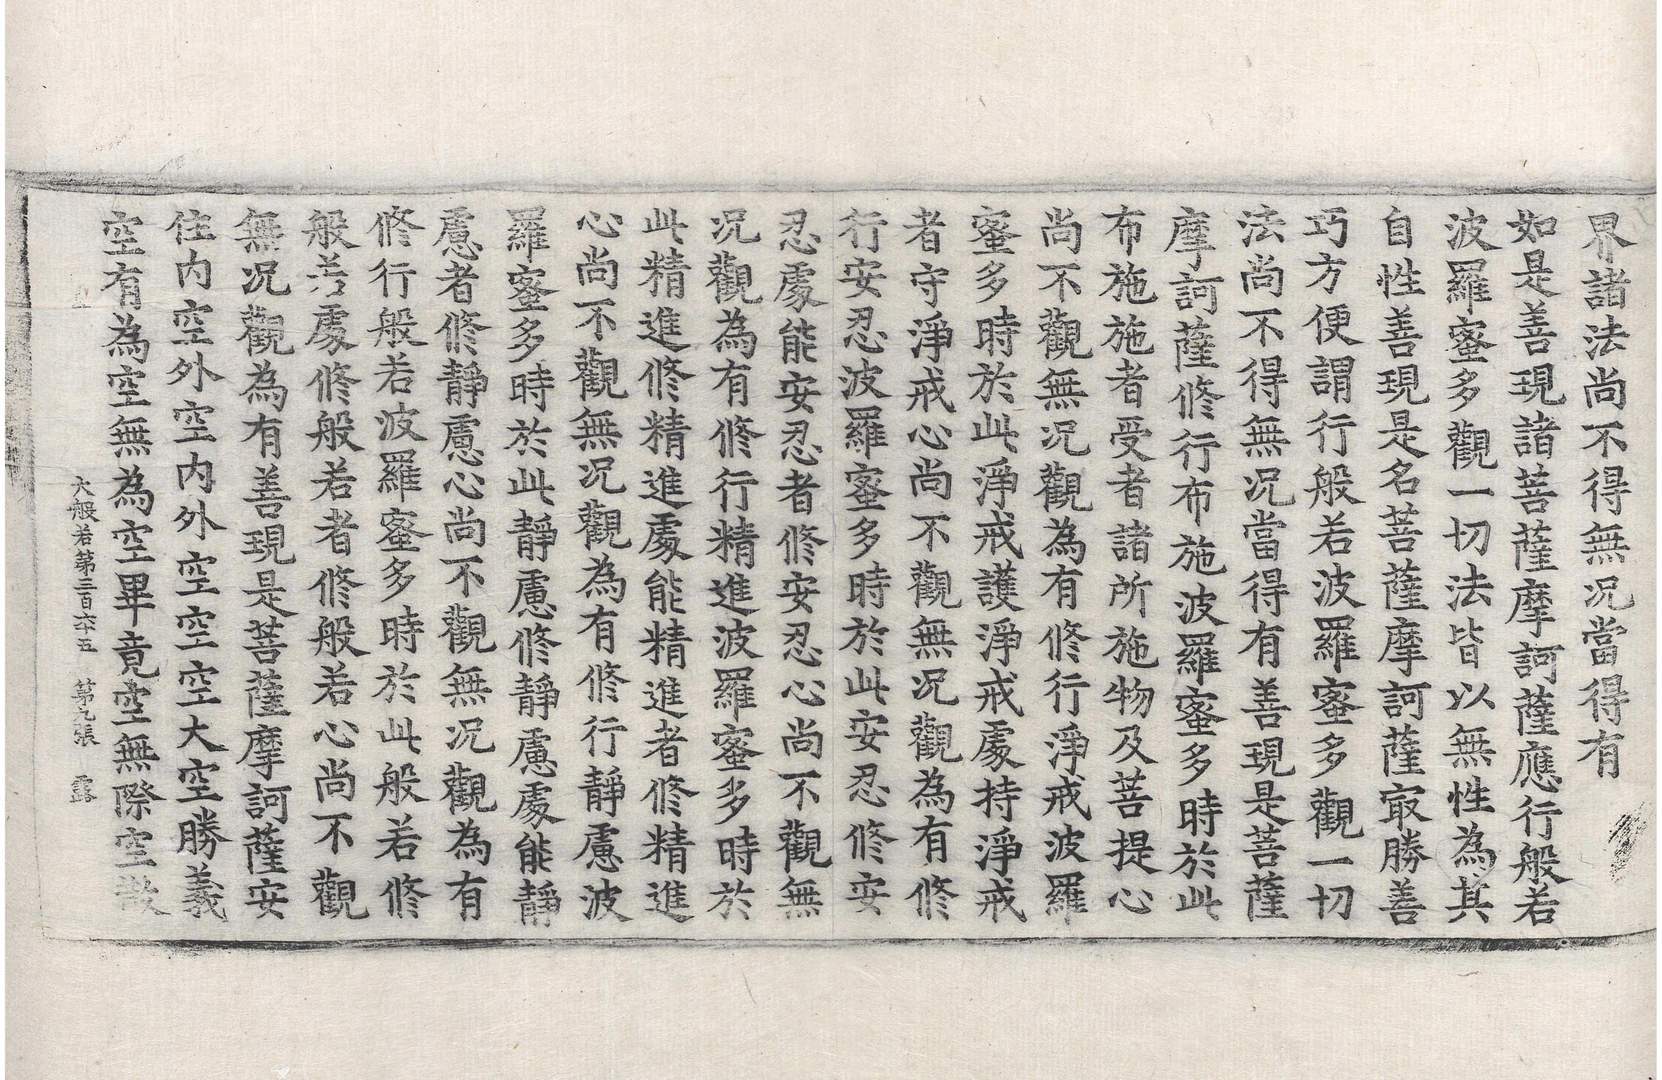 界諸法尚不得無况當得有
如是善現諸菩薩摩訶薩應行般若
波羅蜜多觀一切法皆以無性為其
自性善現是名菩薩摩訶薩㝡勝善
巧方便謂行般若波羅蜜多觀一切
法尚不得無况當得有善現是菩薩
摩訶薩修行布施波羅蜜多時於此
布施施者受者諸所施物及菩提心
尚不觀無况觀為有修行淨戒波羅
蜜多時於此淨戒護淨戒處持淨戒
者守淨戒心尚不觀無况觀為有修
行安忍波羅蜜多時於此安忍修安
忍處能安忍者修安忍心尚不觀無
况觀為有修行精進波羅蜜多時於
此精進修精進處能精進者修精進
心尚不觀無况觀為有修行靜慮波
羅蜜多時於此靜慮修靜慮處能靜
慮者修靜慮心尚不觀無况觀為有
修行般若波羅蜜多時於此般若修
般若處修般若者修般若心尚不觀
無况觀為有善現是菩薩摩訶薩安
住內空外空內外空空空大空勝義
空有為空無為空畢竟空無際空散
大般若第三百六十五 第九張 露